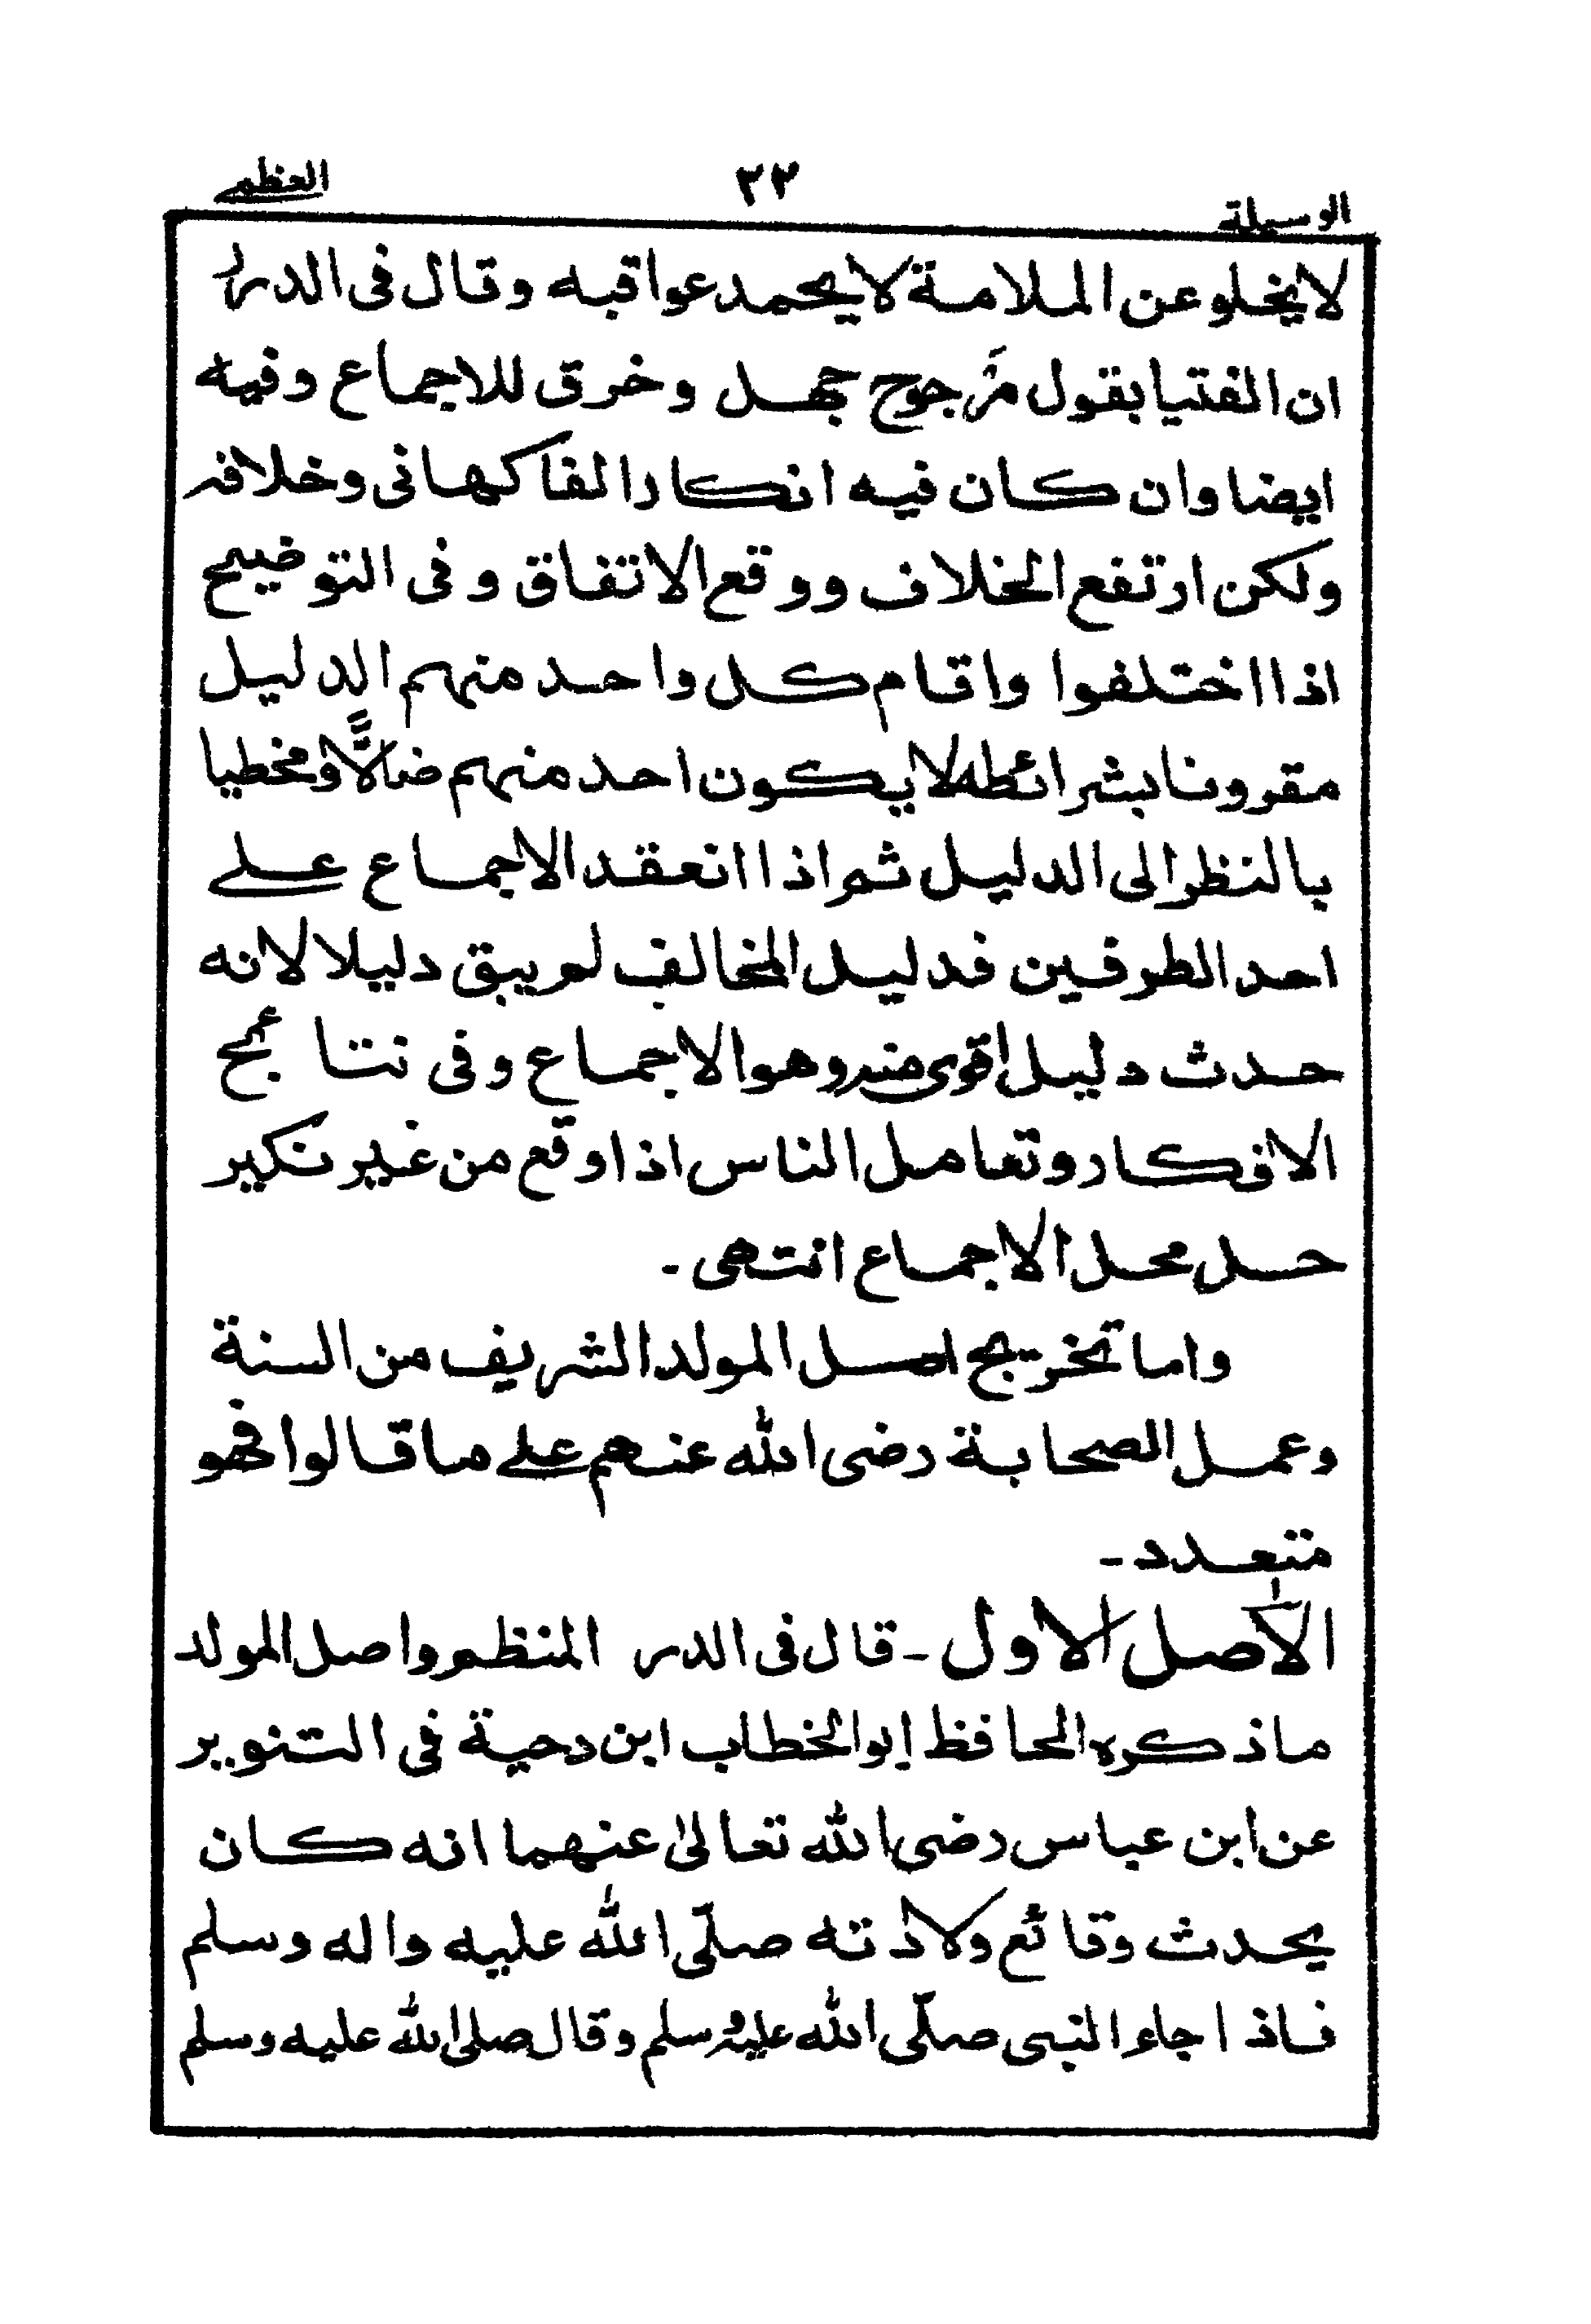 الوسيلة ٢٣ العظمے
لا يخلو عن الملامة لا يحمد عواقبه وقال فى الدرر
ان الفتيا بقول مرجوح جهل وخرق للاجماع وفيه
ايضا وان كان فيه انكار الفاكهانى وخلافه
ولكن ارتفع الخلاف ووقع الاتفاق وفى التوضيح
اذا اختلفوا واقام كل واحد منهم الدليل
مقرونا بشرائطه لا يكون احد منهم ضالًّا ومخطيا
بالنظر الى الدليل ثم اذا انعقد الاجماع علے
احد الطرفين فدليل المخالف لم يبق دليلا لانه
حدث دليل اقوى منه وهو الاجماع وفى نتائج
الافكار وتعامل الناس اذا وقع من غير نكير
حل محل الاجماع انتهى -
واما تخريج اصل المولد الشريف من السنة
وعمل الصحابة رضى الله عنهم علے ما قالوا فهو
متعدد -
الأصل الاول - قال فى الدر المنظم واصل المولد
ما ذكره الحافظ ابو الخطاب ابن دحية في التنوير
عن ابن عباس رضى الله تعالىٰ عنهما انه كان
يحدث وقائع ولادته صلّى الله عليه واله وسلم
فاذا جاء النبى صلّى الله عليه وسلم وقال صلى الله عليه وسلم